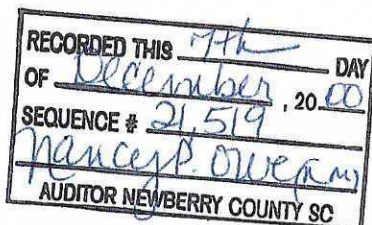 RECORDED THIS 7th DAY
OF December, 2000
SEQUENCE # 21,519
Nancy P. Owen
AUDITOR NEWBERRY COUNTY SC